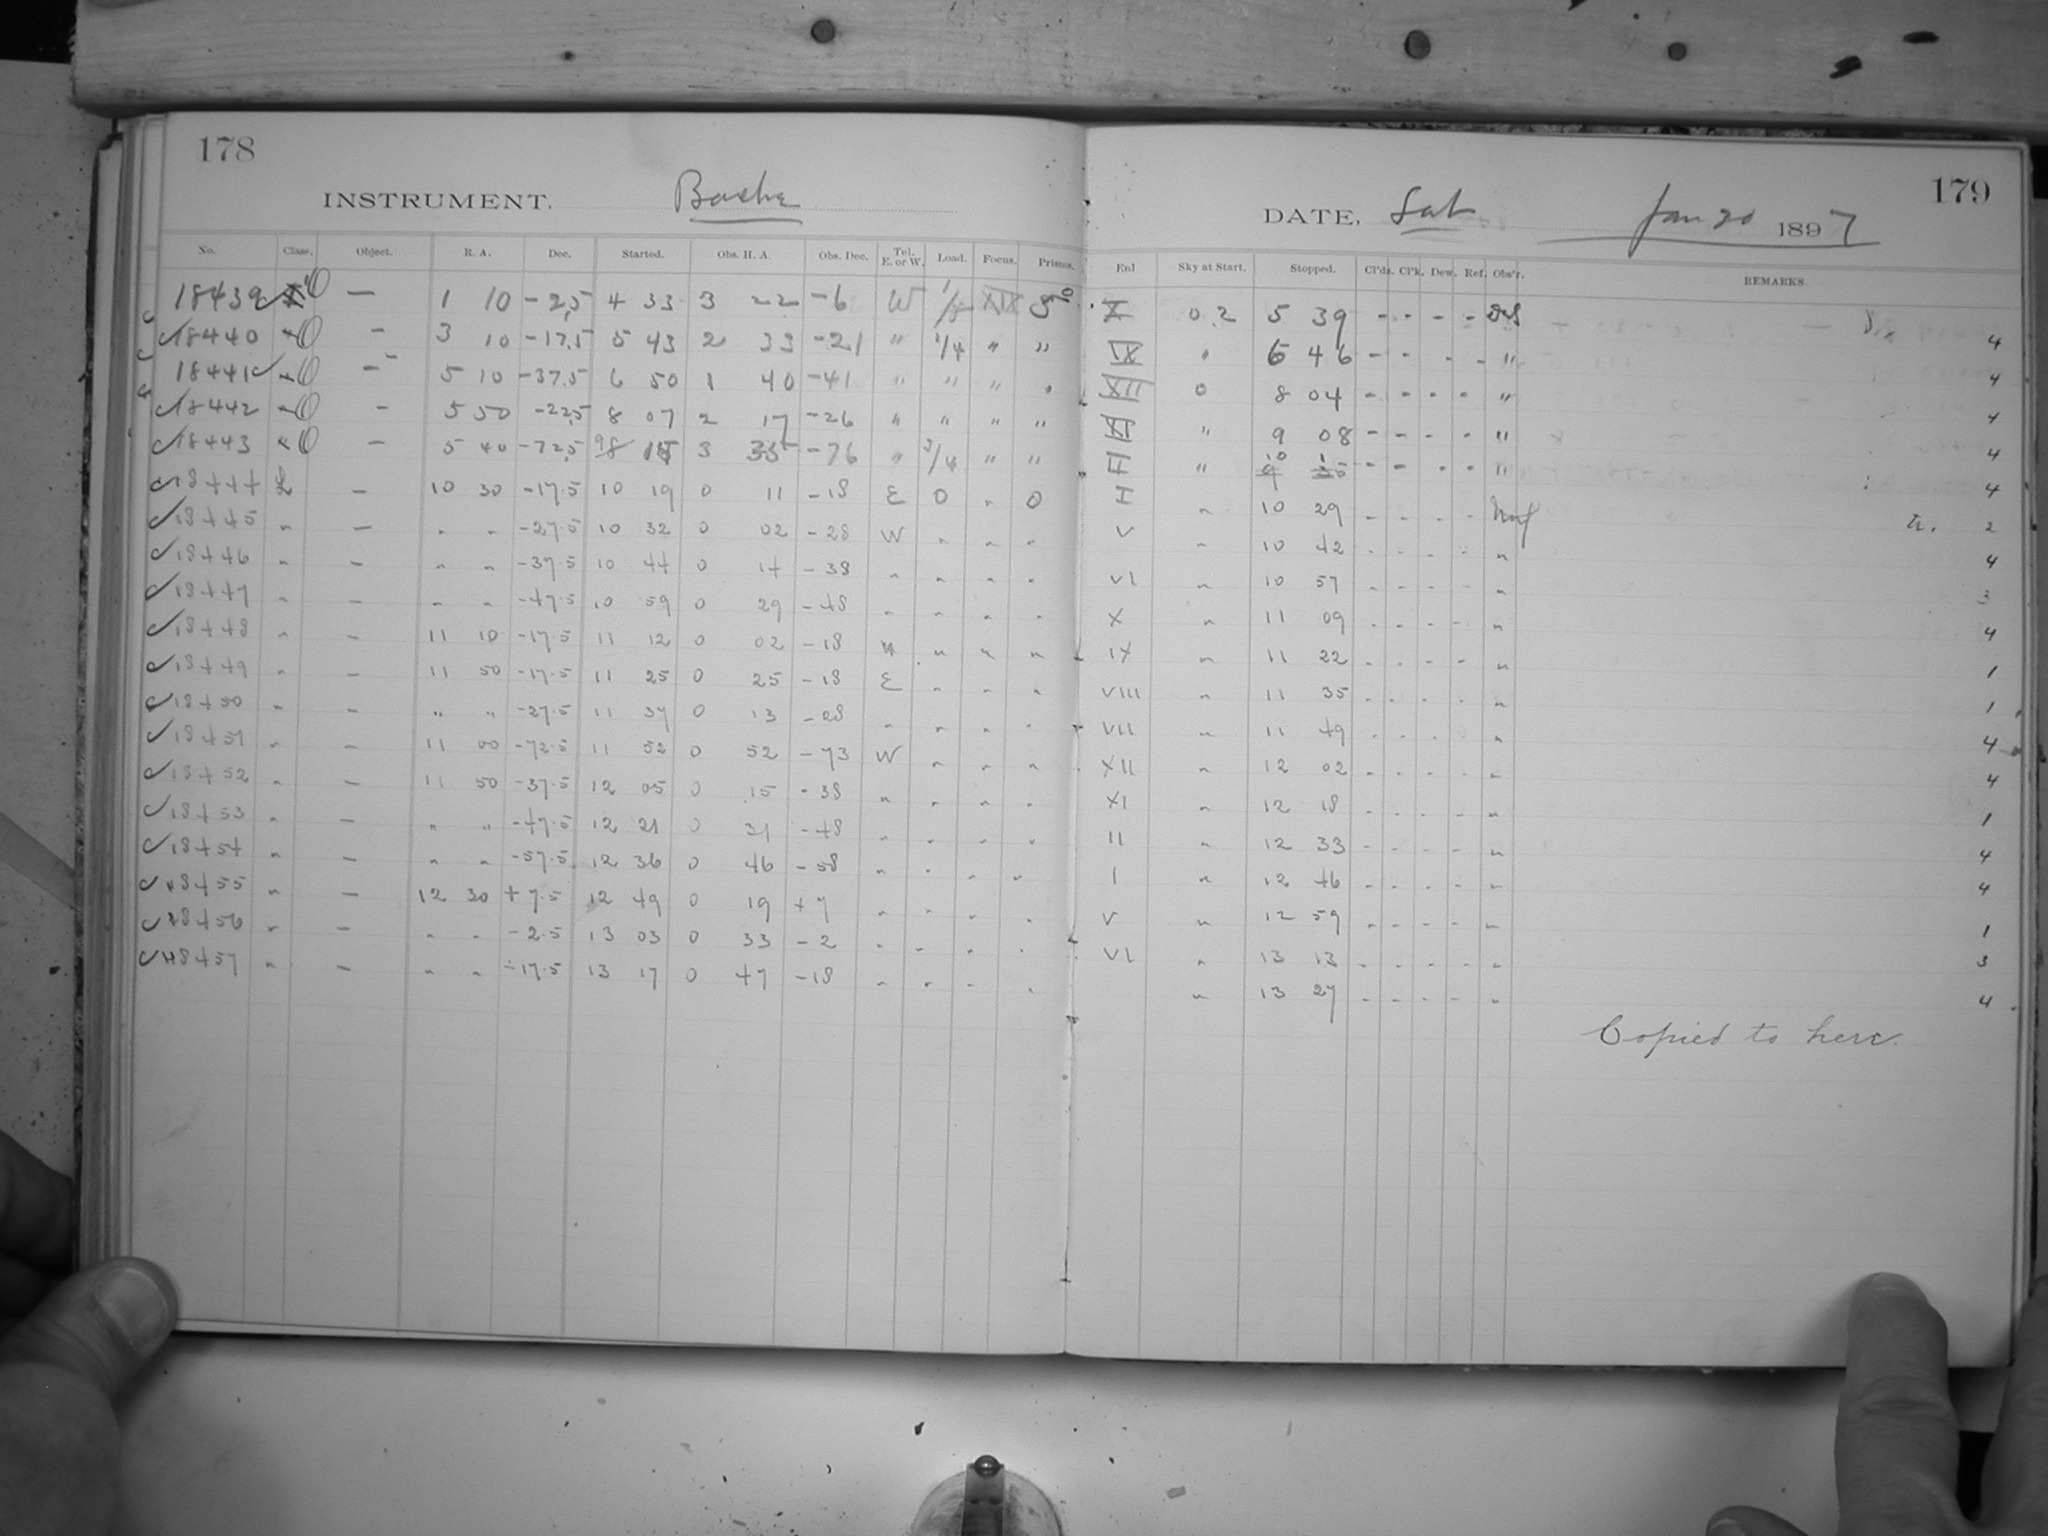 178
INSTRUMENT. Bache
No. Class. Object. R. A. Dec. Started. Obs. H. A. Obs. Dec. Tel. E. or W. Load. Focus. Prisms.
18439 — 1 10 -2.5 4 33 3 22 -6 W
18440 O - 3 10 -17.5 5 43 2 33 -21 " 1/4 " "
18441 O - 5 10 -37.5 6 50 1 40 -41 " " "
18442 O - 5 50 -22.5 8 07 2 17 -26 " " " "
18443 O - 5 40 -72.5 3 35 -76 " 3/4 " "
18444 L - 10 30 -17.5 10 19 0 11 -18 E 0 " 0
18445 " - " " -27.5 10 32 0 02 -28 W " " "
18446 " - " " -37.5 10 44 0 14 -38 " " " "
18447 " - " " -47.5 10 59 0 29 -48 " " " "
18448 " - 11 10 -17.5 11 12 0 02 -18 " " "
18449 " - 11 50 -17.5 11 25 0 25 -18 E " " "
18450 " - " " -27.5 11 37 0 13 -28 " " " "
18451 " - 11 00 -72.5 11 52 0 52 -73 W " " "
18452 " - 11 50 -37.5 12 05 0 15 -38 " " " "
18453 " - " " -47.5 12 21 0 31 -48 " " " "
18454 " - " " -57.5 12 36 0 46 -58 " " " "
18455 " - 12 30 +7.5 12 49 0 19 +7 " " " "
18456 " - " " -2.5 13 03 0 33 -2 " " " "
18457 " - " " -17.5 13 17 0 47 -18 " " " "
179
DATE. Sat Jan 30 1897
Enl Sky at Start. Stopped. Cl'ds. Cl'k. Dew. Ref. Obs'r. REMARKS.
X 0.2 5 39 - - - - 4
IX " 6 46 - - - - " 4
XII 0 8 04 - - - - " 4
XI " 9 08 - - - - " 4
II " 10 - - - - " 4
I " 10 29 - - - - tr. 2
V " 10 42 - - - - " 4
VI " 10 57 - - - - " 3
X " 11 09 - - - - " 4
IX " 11 22 - - - - " 1
VIII " 11 35 - - - - " 1
VII " 11 49 - - - - " 4
XII " 12 02 - - - - " 4
XI " 12 18 - - - - " 1
II " 12 33 - - - - " 4
I " 12 46 - - - - " 4
V " 12 59 - - - - " 1
VI " 13 13 - - - - " 3
" 13 27 - - - - " 4
Copied to here.